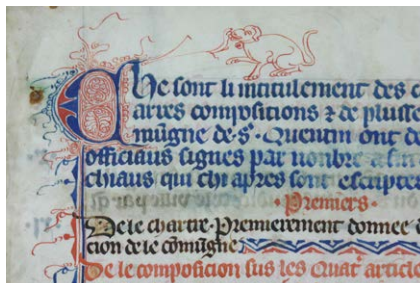 Che sont li intitulement des c
artres compositions ⁊ de pluse
mugne de·s'·Quentin ont de
officiaus signes par nonbre a
chiaus qui chi apres sont escriptes
·Premiers·
De le chartre·Premierement donnee
cion de le cōmugne
De le composicion sus les Quat' article